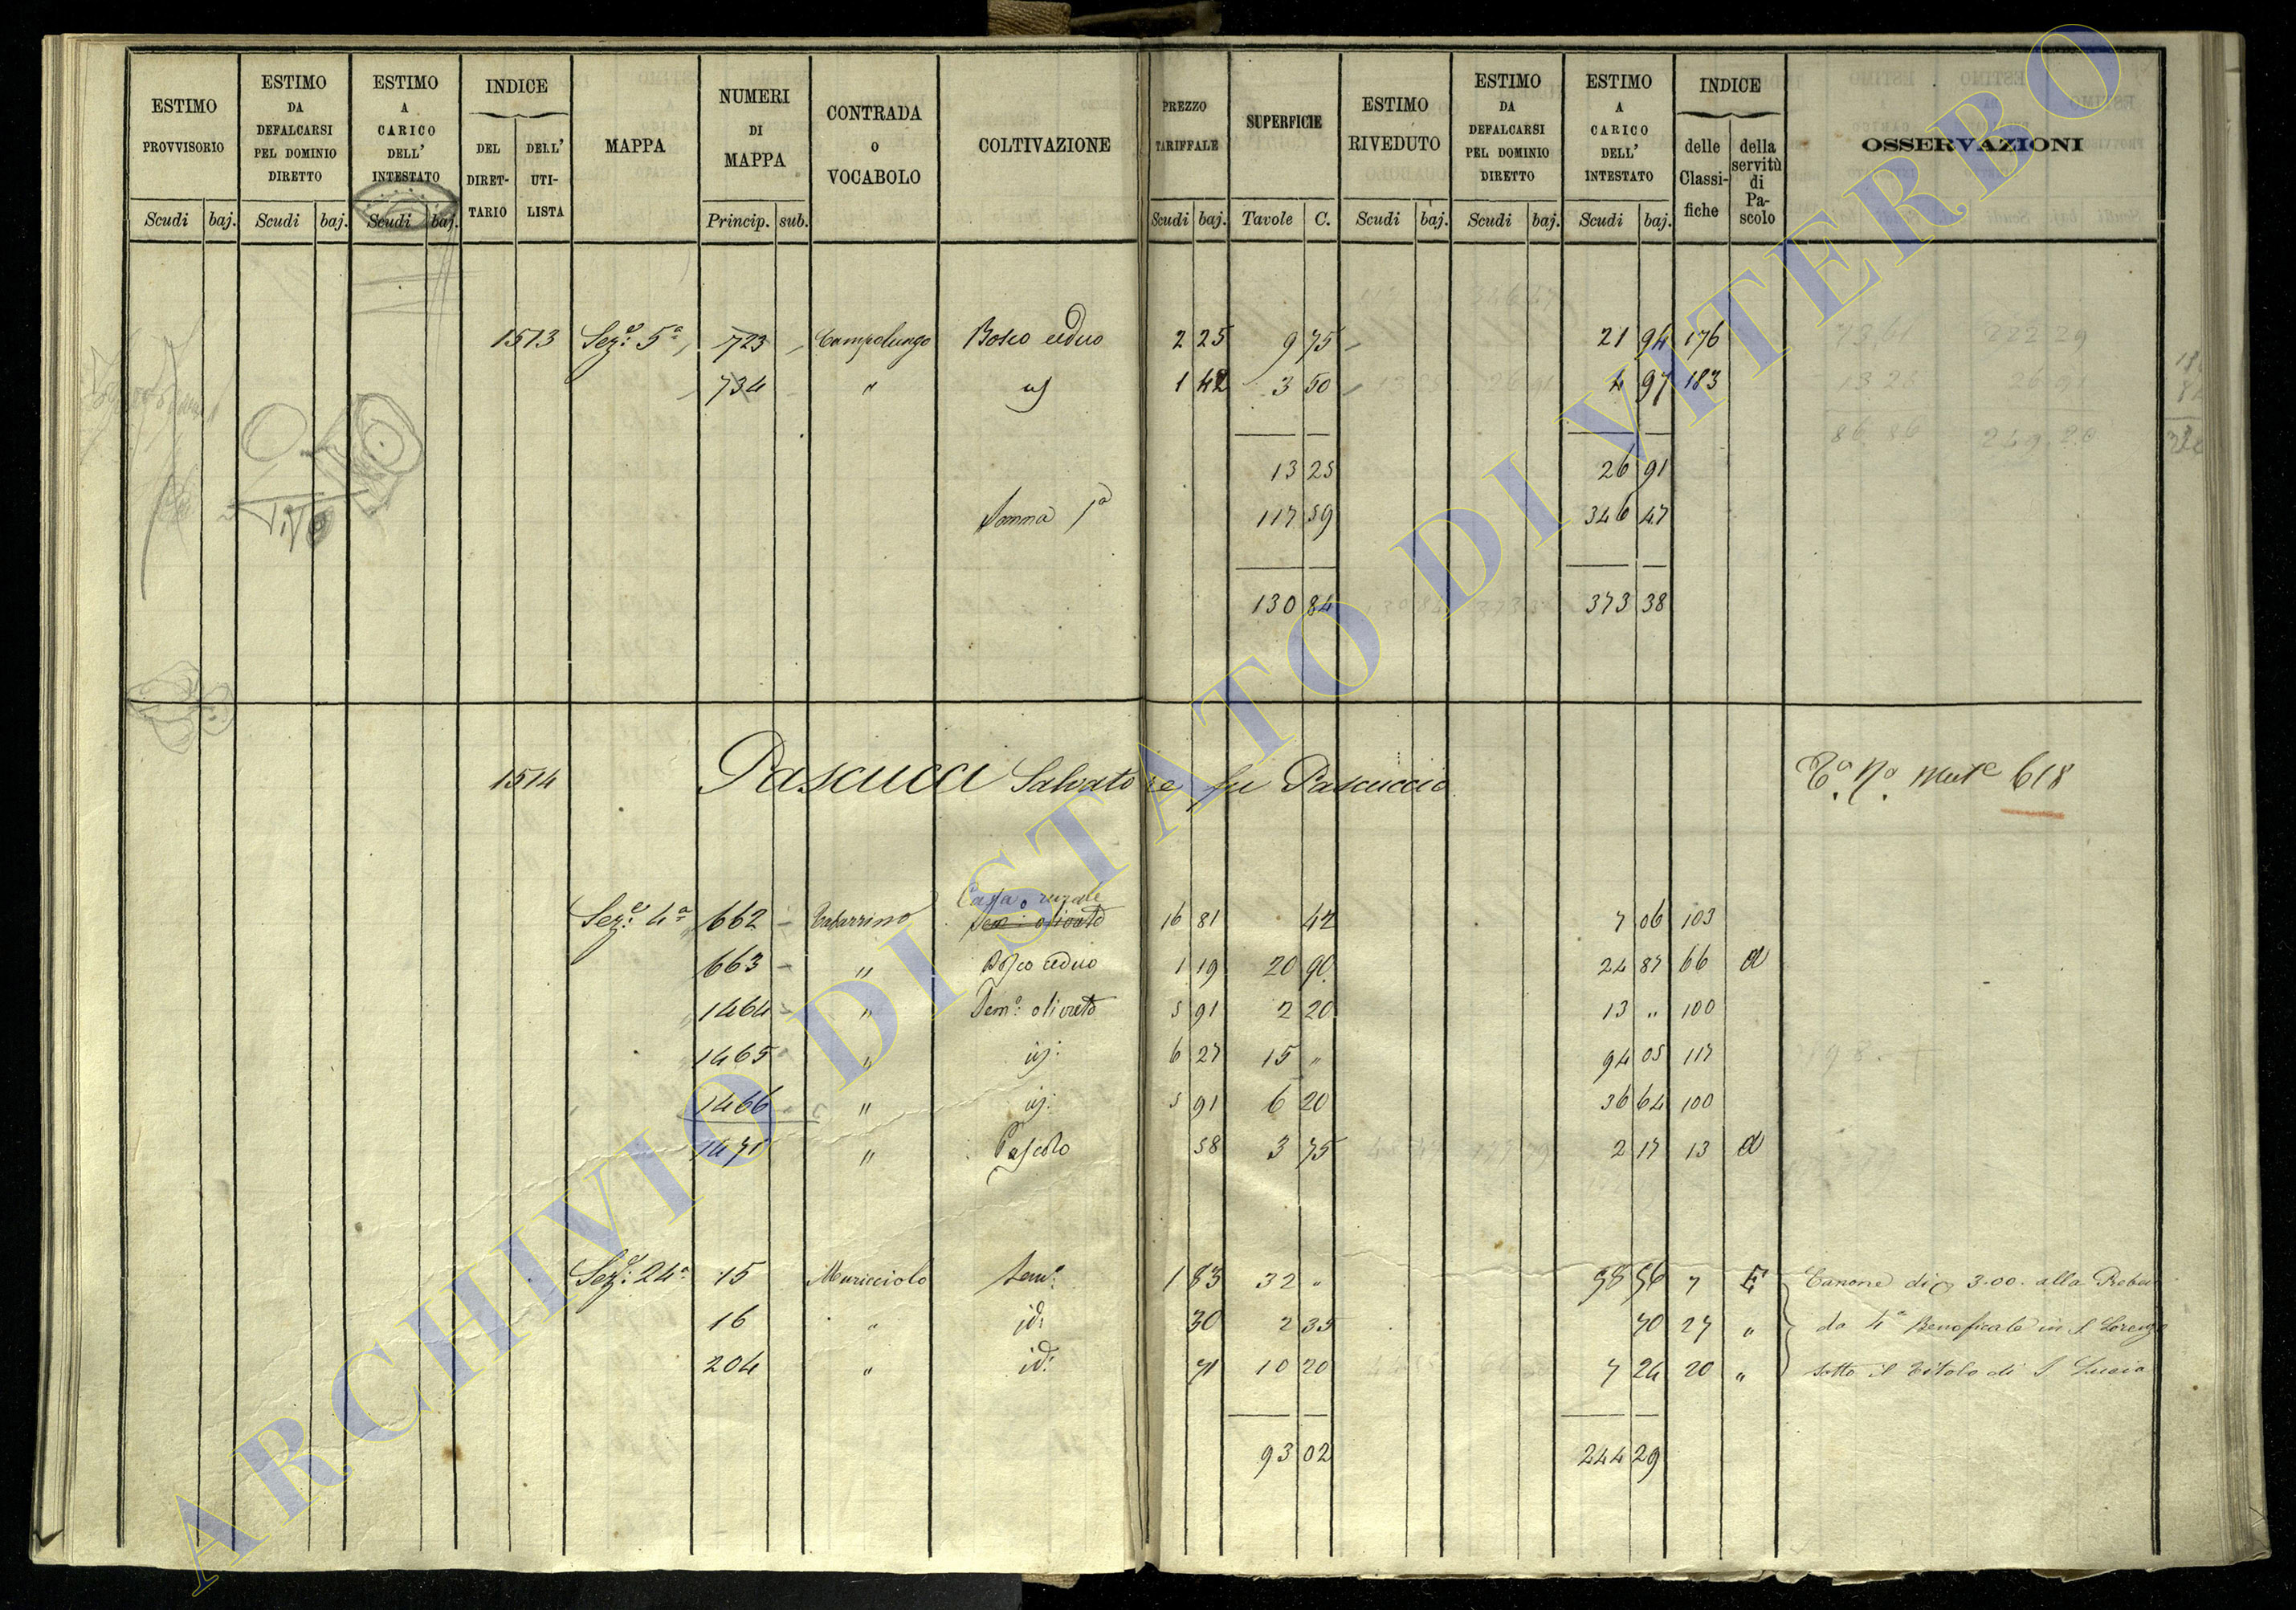 ESTIMO PROVVISORIO Scudi baj.
ESTIMO DA DEFALCARSI PEL DOMINIO DIRETTO Scudi baj.
ESTIMO A CARICO DELL' INTESTATO Scudi baj.
INDICE DEL DIRETTARIO DELL' UTILISTA
MAPPA
NUMERI DI MAPPA Princip. sub.
CONTRADA O VOCABOLO
COLTIVAZIONE
PREZZO TARIFFALE Scudi baj.
SUPERFICIE Tavole C.
ESTIMO RIVEDUTO Scudi baj.
ESTIMO DA DEFALCARSI PEL DOMINIO DIRETTO Scudi baj.
ESTIMO A CARICO DELL' INTESTATO Scudi baj.
INDICE delle Classifiche della servitù di Pascolo
OSSERVAZIONI
1513 Sez.e 5a 723 Campolungo Bosco ceduo 2 25 9 75 21 94 176
734 " id 1 42 3 50 4 97 183
13 25 26 91
Somma 1a 117 59 346 47
130 84 373 38
1514 Pascucci Salvatore fu Pascuccio 618
Sez.e 4a 662 Casa rurale
Sem.o olivato 16 81 42 7 06 103
663 " Bosco ceduo 1 19 20 90 24 87 66 a
1464 " Sem.o olivato 5 91 2 20 13 " 100
1465 " id. 6 27 15 " 94 05 117
1466 " id. 5 91 6 20 36 64 100
1471 " Pascolo 58 3 75 2 17 13 a
Sez.e 24a 15 Muricciolo Sem.o 1 83 32 " 58 56 7 E Canone di 3.00. alla Preben
16 " id. 30 2 35 70 27 " da 4a Beneficale in S. Lorenzo
204 " id. 71 10 20 7 24 20 " sotto il titolo di S Lucia
93 02 244 29
ARCHIVIO DI STATO DI VITERBO